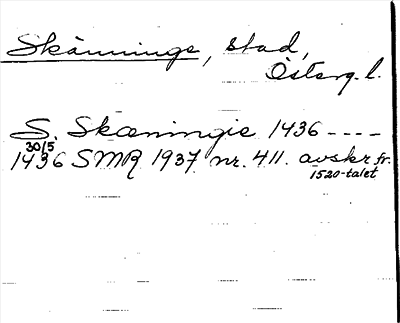 Skänninge, stad,
Österg.l.
S. Skæningie 1436 ----
30/5
1436 SMR 1937 nr. 411. avskr. fr.
1520-talet